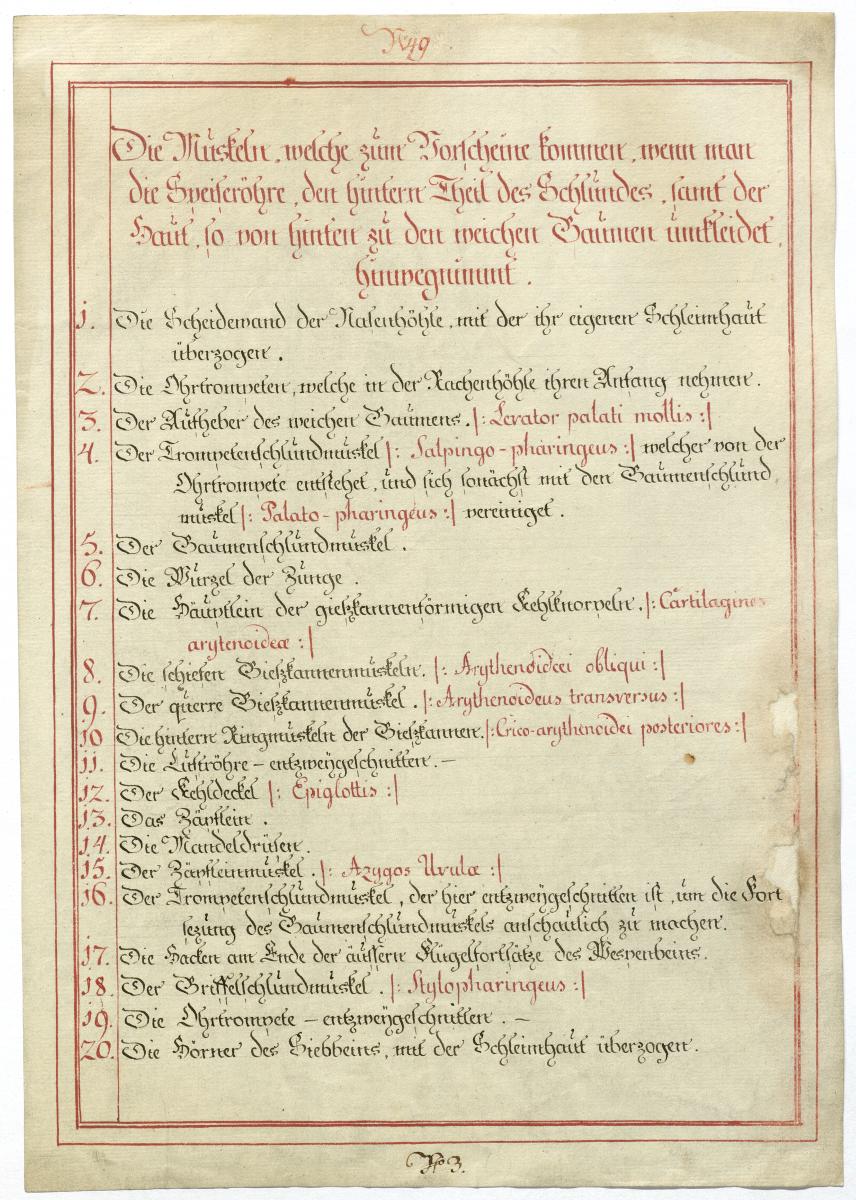 N 49
Die Muskeln, welche zum Vorscheine kommen, wenn man
die Speiseröhre, den hintern Theil des Schlundes, samt der
Haut, so von hinten zu den weichen Gaumen umkleidet,
hinwegnimmt.
1. Die Scheidewand der Nasenhöhle, mit der ihr eigenen Schleimhaut
überzogen.
2. Die Ohrtrompeten, welche in der Rachenhöhle ihren Anfang nehmen.
3. Der Aufheber des weichen Gaumens. |: Levator palati mollis :|
4. Der Trompetenschlundmuskel |: Salpingo-pharingeus :| welcher von der
Ohrtrompete entstehet, und sich sonächst mit den Gaumenschlund
muskel |: Palato-pharingeus :| vereiniget.
5. Der Gaumenschlundmuskel.
6. Die Wurzel der Zunge.
7. Die Häuptlein der gießkannenförmigen Kehlknorpeln. |: Cartilagines
arytenoideæ :|
8. Die schiefen Gießkannenmuskeln. |: Arythenoideei obliqui :|
9. Der querre Gießkannenmuskel. |: Arythenoideus transversus :|
10 Die hintern Ringmuskeln der Gießkannen. |: Crico-arythenoidei posteriores :|
11. Die Luftröhre – entzweygeschnitten. –
12. Der Kehldeckel |: Epiglottis :|
13. Das Zäpflein.
14. Die Mandeldrüsen.
15. Der Zäpfleinmuskel. |: Azygos Uvulæ :|
16. Der Trompetenschlundmuskel, der hier entzweygeschnitten ist, um die Fort
sezung des Gaumenschlundmuskels anschaulich zu machen.
17. Die Hacken am Ende der äussern Flügelfortsätze des Wespenbeins.
18. Der Griffelschlundmuskel. |: Stylopharingeus :|
19. Die Ohrtrompete – entzweygeschnitten. –
20. Die Hörner des Siebbeins, mit der Schleimhaut überzogen.
No 3.